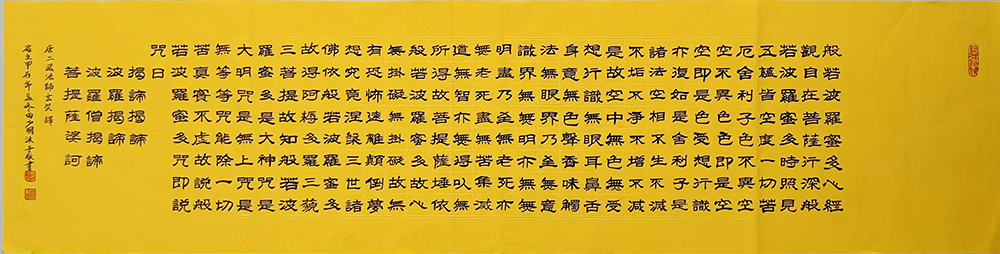 般若波羅蜜多心經
觀自在菩薩行深般
若波羅蜜多時照見
五蘊皆空度一切苦
厄舍利子色不異空
空不異色色即是空
空即是色受想行識
亦復如是舍利子是
諸法空相不生不滅
不垢不淨不增不減
是故空中無色無受
想行識無眼耳鼻舌
身意無色聲香味觸
法無眼界乃至無意
識界無無明亦無無
明盡乃至無老死亦
無老死盡無苦集滅
道無智亦無得以無
所得故菩提薩埵依
般若波羅蜜多故心
無掛礙無掛礙故無
有恐怖遠離顛倒夢
想究竟涅槃三世諸
佛依般若波羅蜜多
故得阿耨多羅三藐
三菩提故知般若波
羅蜜多是大神咒是
大明咒是無上咒是
無等等咒能除一切
苦真實不虛故說般
若波羅蜜多咒即説
咒曰
揭諦揭諦
波羅揭諦
波羅僧揭諦
菩提薩婆訶
唐三藏法師玄奘譯
甲辰年